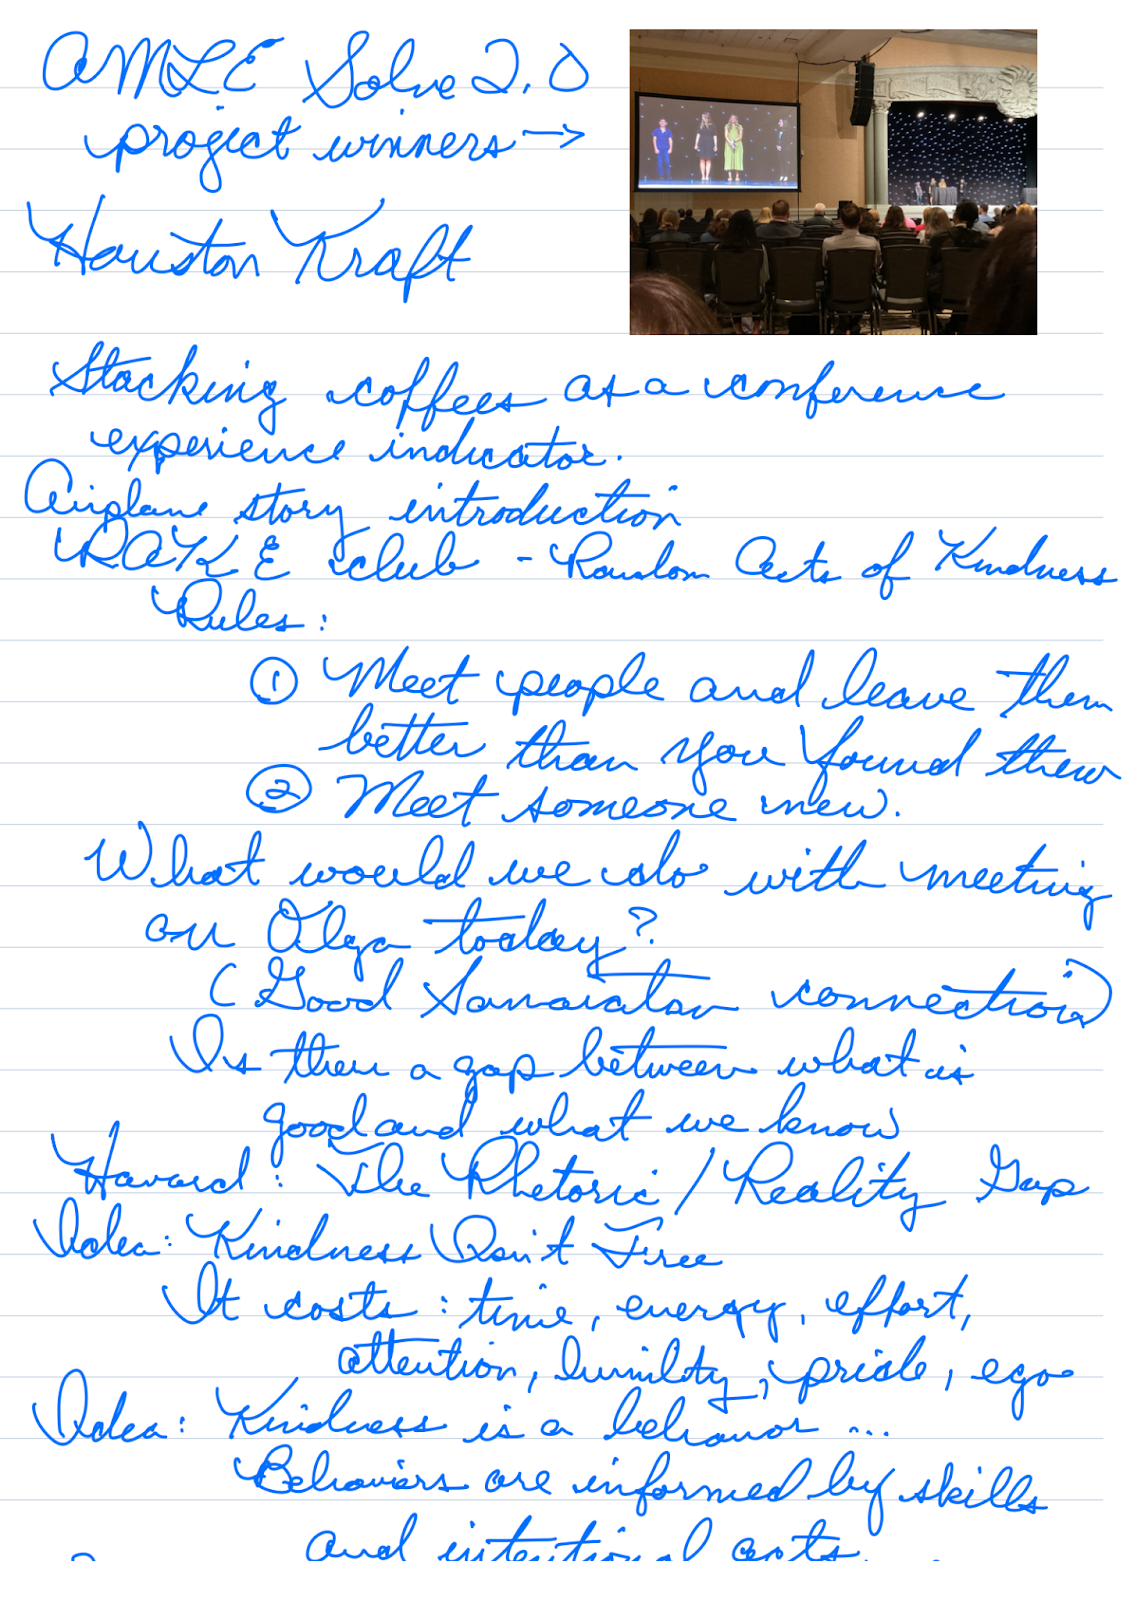 AMLE Solve 2.0
project winners →
Houston Kraft
Stacking coffees as a conference
experience indicator.
Airplane story introduction
RAKE club - Random Acts of Kindness
Rules:
① Meet people and leave them
better than you found them
② Meet someone new.
What would we do with meeting
an Olga today?
(Good Samaratan connection)
Is there a gap between what is
good and what we know
Havard: The Rhetoric / Reality Gap
Idea: Kindness Isn't Free
It costs: time, energy, effort,
attention, humility, pride, ego
Idea: Kindness is a behavior ...
Behaviors are informed by skills
and intentional acts.